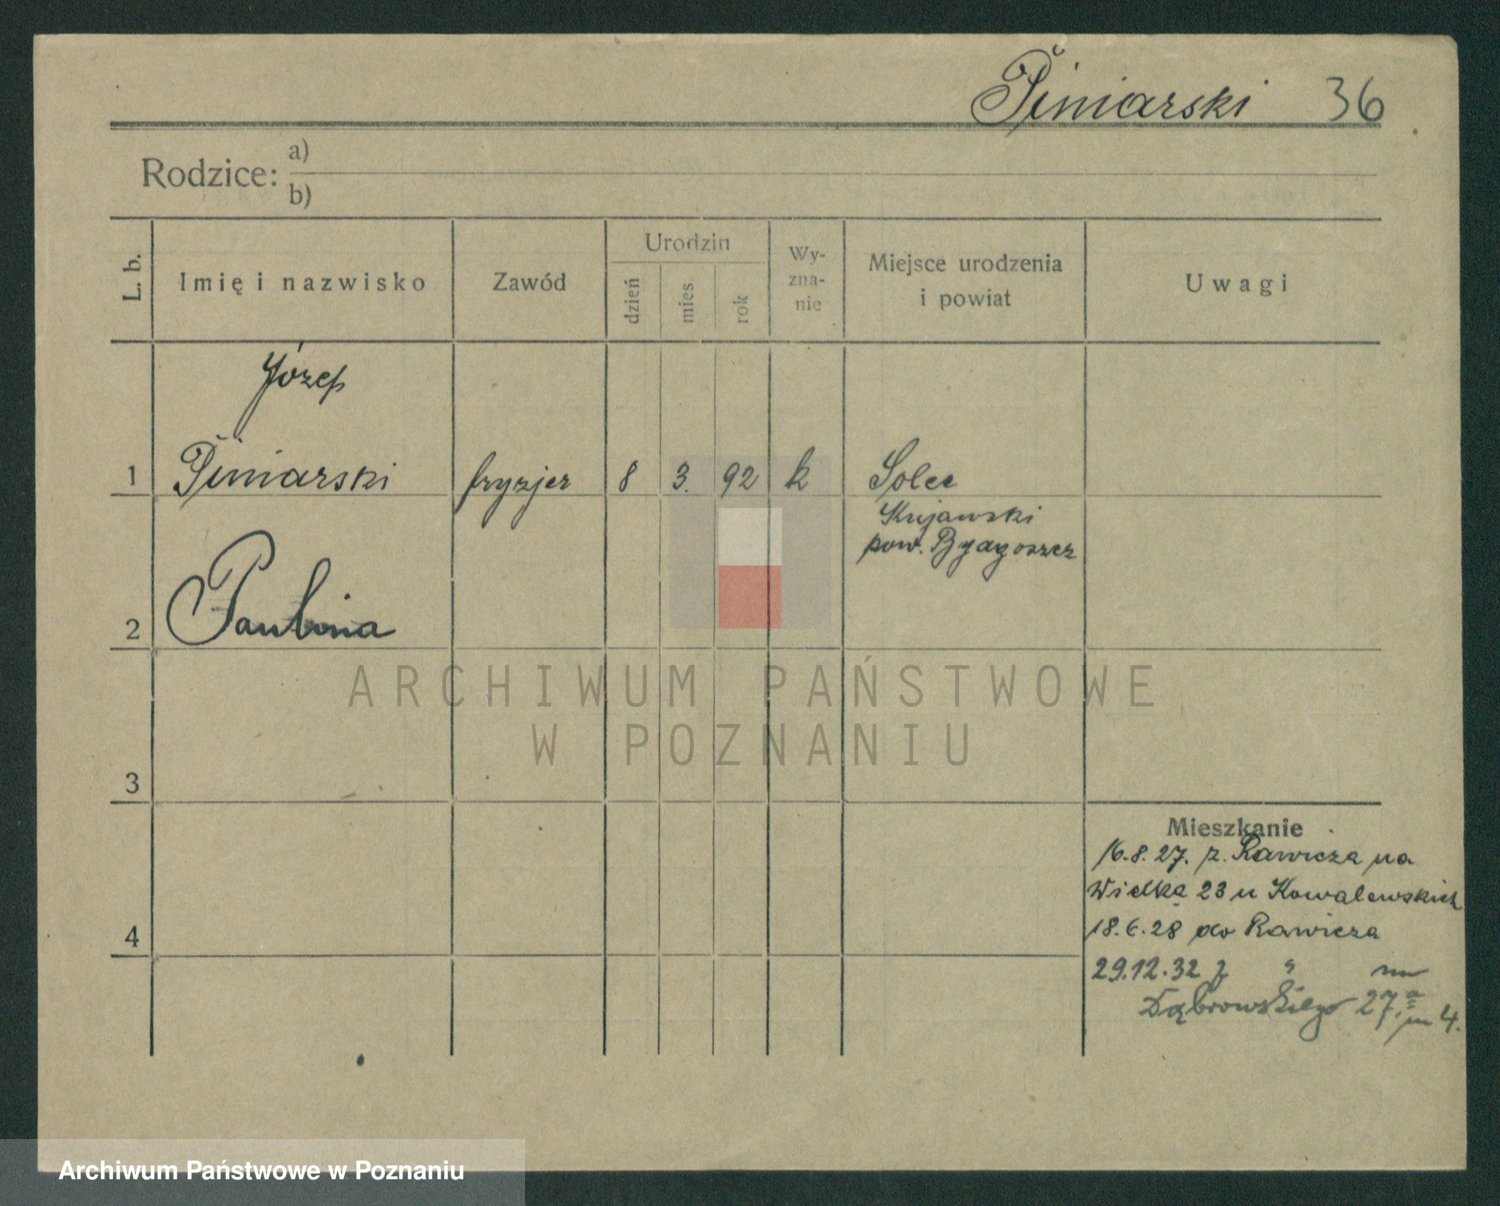 Piniarski 36
Rodzice: a)
b)
L. b.
Imię i nazwisko
Zawód
Urodzin
dzień
mies.
rok
Wy-
zna-
nie
Miejsce urodzenia
i powiat
Uwagi
Józef
1 Piniarski fryzjer 8 3. 92 k Solec
Kujawski
pow. Bydgoszcz
2 Paulina
3
4
Mieszkanie
16.8.27. z. Rawicza na
Wielką 23 u Kowalewskich
18.6.28 do Rawicza
29.12.32 z " na
Dąbrowskiego 27.a m 4.
ARCHIWUM PAŃSTWOWE
W POZNANIU
Archiwum Państwowe w Poznaniu